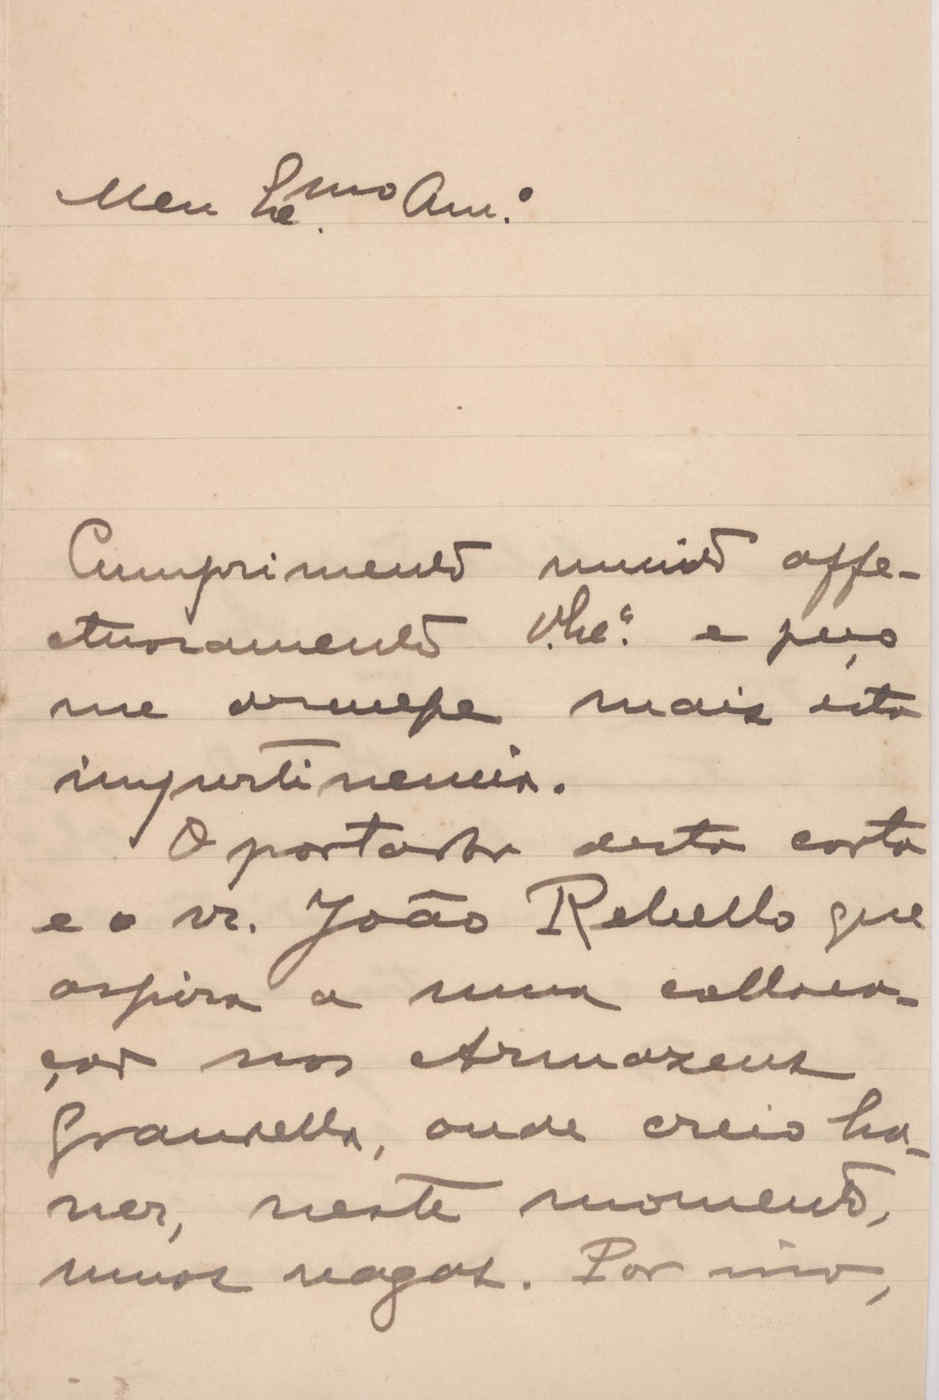 Meu Ex.mo Am.º
Cumprimento muito affe-
ctuosamente V. Ex.ª e peço
me desculpe mais esta
impertinencia.
O portador desta carta
e o sr. João Rebello que
aspira a uma colloca-
ção nos Armazens
Grandella, onde creio ha-
ver, neste momento,
umas vagas. Por isso,